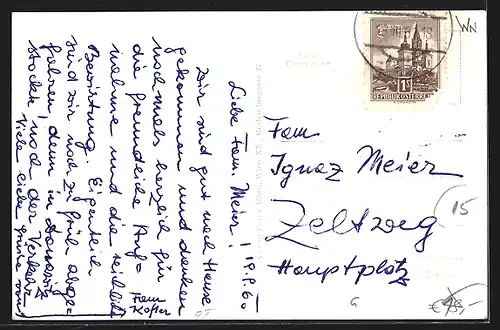 19.9.60
Liebe Fam. Meier!
Wir sind gut nach Hause
gekommen und danken
nochmals herzlich für
die freundliche Auf-
nahme und die reichliche
Bewirtung. Eigentlich
sind wir noch zu früh abge-
fahren, denn in
stockte noch der Verkehr
Viele liebe Grüße von
Fam
Kofler
Fam
Ignaz Meier
Zeltweg
Hauptplatz
1S
REPUBLIK ÖSTERREICH
WN
15
G